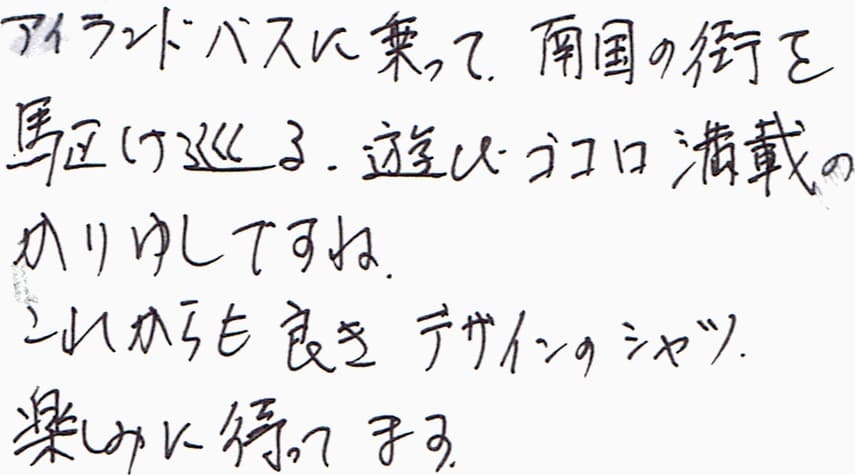 アイランドバスに乗って、南国の街を
駆け巡る、遊びゴコロ満載の
かりゆしですね。
これからも良きデザインのシャツ、
楽しみに待ってます。